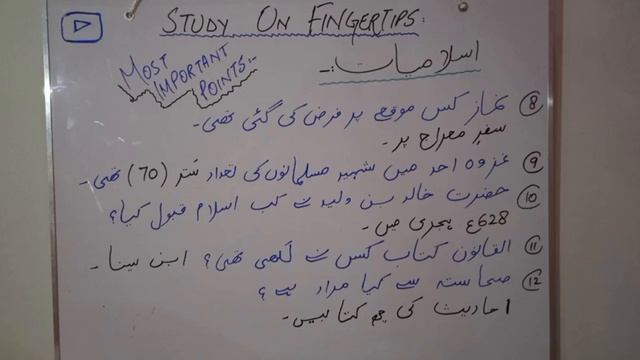 STUDY ON FINGERTIPS:
MOST
IMPORTANT
POINTS:-
اسلامیات:-
⑧ نماز کس موقع پر فرض کی گئی تھی۔
سفرِ معراج پر۔
⑨ غزوہ احد میں شہید مسلمانوں کی تعداد ستر (70) تھی۔
⑩ حضرت خالد بن ولید نے کب اسلام قبول کیا؟
628ء ہجری میں۔
⑪ القانون کتاب کس نے لکھی تھی؟ ابن سینا۔
⑫ صحاستہ سے کیا مراد ہے؟
احادیث کی چھ کتابیں۔